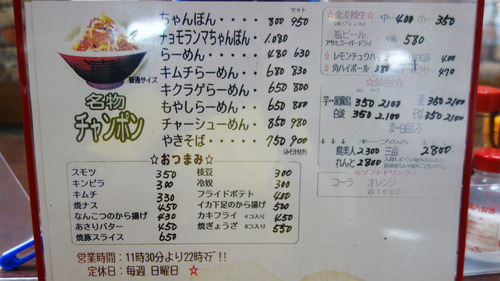 セット
ちゃんぽん・・・・・・ 800 950
チョモランマちゃんぽん・ 1,080
らーめん・・・・・・・ 480 630
キムチらーめん・・・・ 680 830
キクラゲらーめん・・・ 650 800
もやしらーめん・・・・ 650 800
チャーシューめん・・・ 850 980
やきそば・・・・・・・ 750 900
(みそ汁付き)
普通サイズ
名物
チャンポン
☆おつまみ☆
スモツ 350
キンピラ 300
キムチ 330
焼ナス 450
なんこつのから揚げ 430
あさりバター 450
焼豚スライス 650
枝豆 300
冷奴 300
フライドポテト 400
イカ下足のから揚げ 500
カキフライ 4コ入り 450
焼ぎょうざ 8コ入り 550
営業時間:11時30分より22時マデ!!
定休日:毎週 日曜日 ☆
中…400 小…350
☆瓶ビール
アサヒスーパードライ
中瓶 580
☆レモンチュウハイ
☆角ハイボール 380
470
350 2100
白波 350 2100
麦 350 2100
そば 350 2100
島美人 2300
れんと 2800
三岳 2800
☆ソフトドリンク☆
コーラ オレンジ